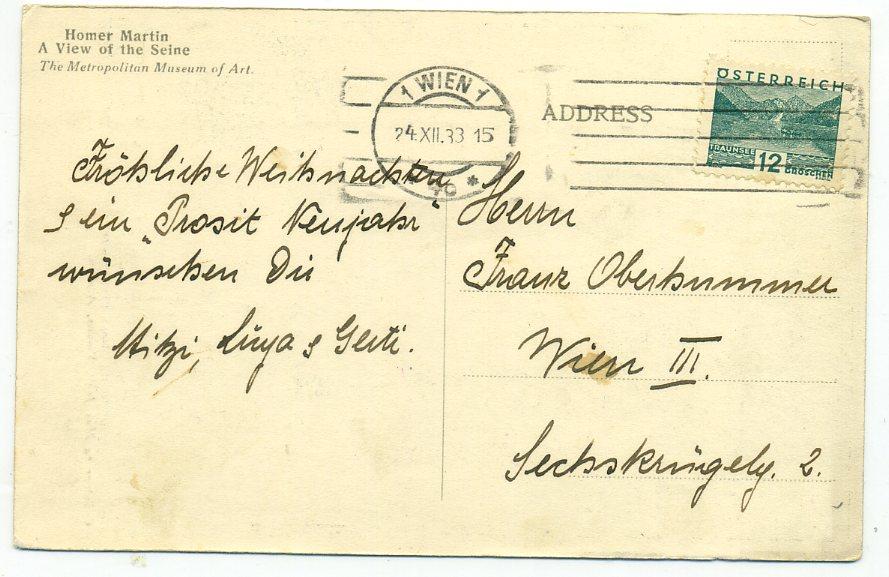 Homer Martin
A View of the Seine
The Metropolitan Museum of Art.
1 WIEN 1
24.XII.33 15
* 10 *
ADDRESS
ÖSTERREICH
TRAUNSEE 12 GROSCHEN
Fröhliche Weihnachten
& ein „Prosit Neujahr“
wünschen Dir
Mitzi, & Gerti.
Herrn
Franz Oberkummer
Wien III.
Sechskrügelg. 2.